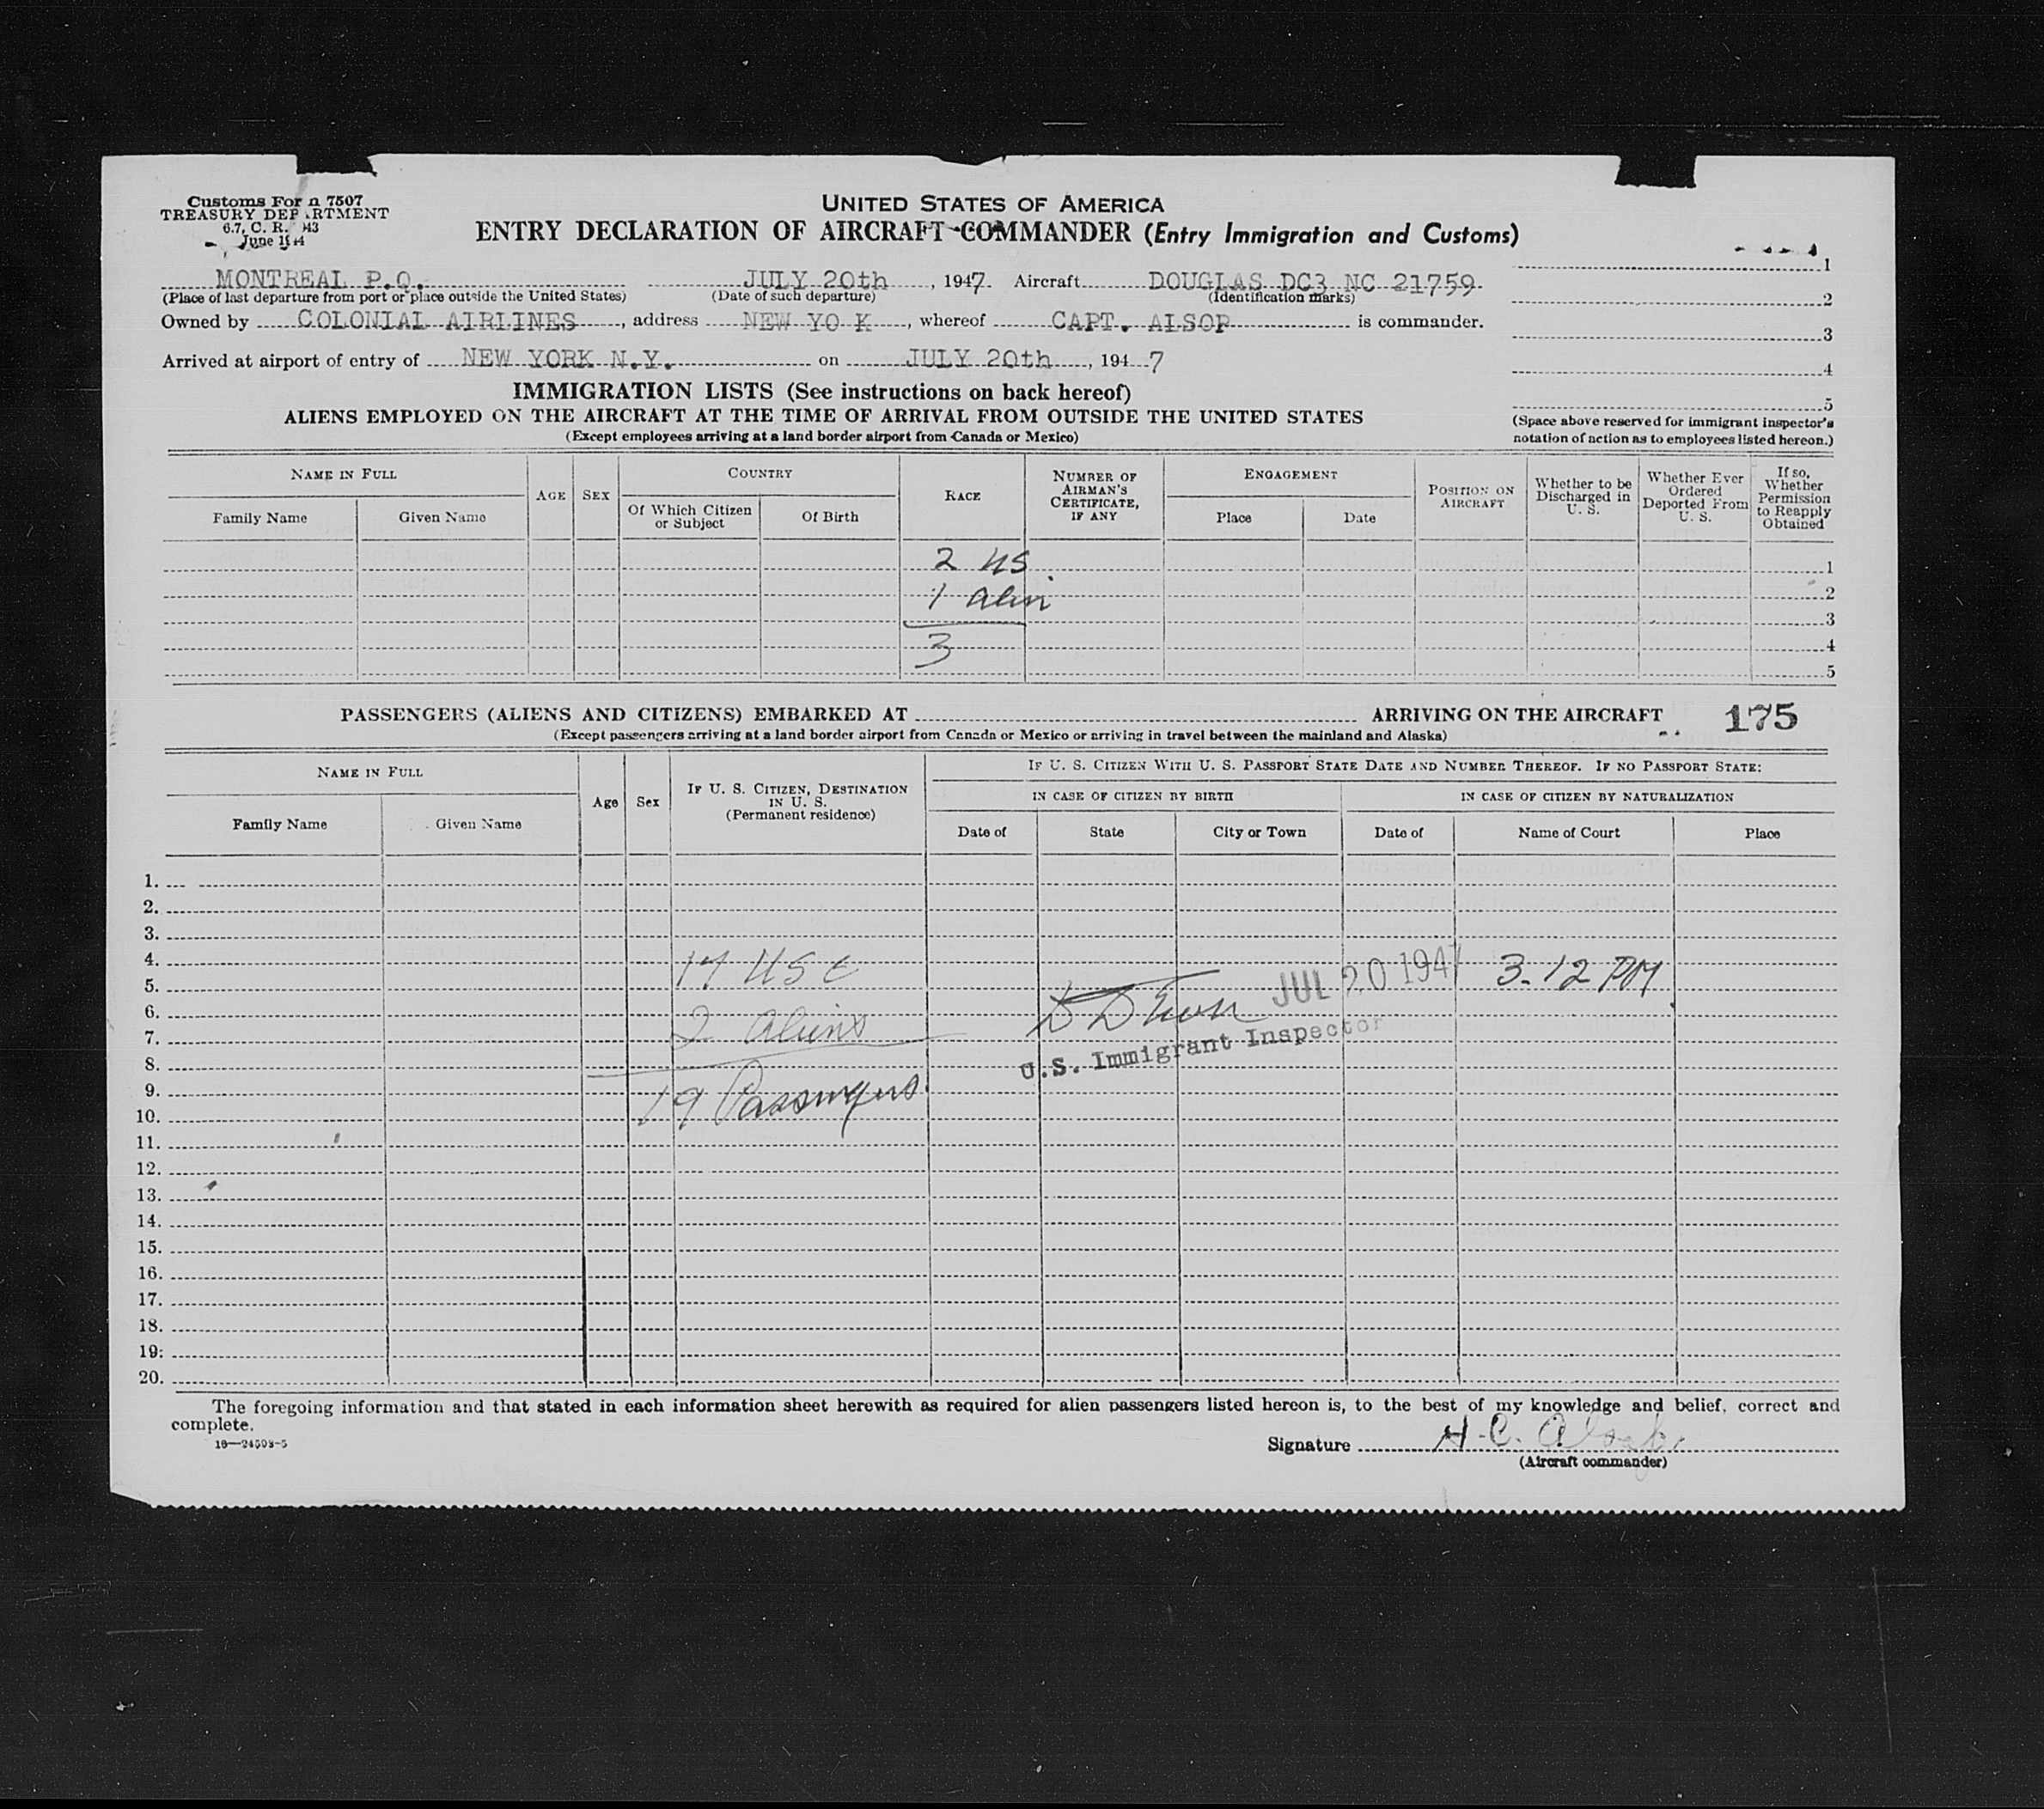 Customs Form 7507
TREASURY DEPARTMENT
6.7, C. R. 943
June 1944
UNITED STATES OF AMERICA
ENTRY DECLARATION OF AIRCRAFT COMMANDER (Entry Immigration and Customs)
MONTREAL P.Q. JULY 20th, 1947. Aircraft DOUGLAS DC3 NC 21759
(Place of last departure from port or place outside the United States) (Date of such departure) (Identification marks)
Owned by COLONIAL AIRLINES, address NEW YO K, whereof CAPT. ALSOP is commander.
Arrived at airport of entry of NEW YORK N.Y. on JULY 20th, 1947
1
2
3
4
5
(Space above reserved for immigrant inspector's
notation of action as to employees listed hereon.)
IMMIGRATION LISTS (See instructions on back hereof)
ALIENS EMPLOYED ON THE AIRCRAFT AT THE TIME OF ARRIVAL FROM OUTSIDE THE UNITED STATES
(Except employees arriving at a land border airport from Canada or Mexico)
NAME IN FULL
Family Name Given Name
AGE SEX
COUNTRY
Of Which Citizen
or Subject
Of Birth
RACE
NUMBER OF
AIRMAN'S
CERTIFICATE,
IF ANY
ENGAGEMENT
Place Date
POSITION ON
AIRCRAFT
Whether to be
Discharged in
U. S.
Whether Ever
Ordered
Deported From
U. S.
If so,
Whether
Permission
to Reapply
Obtained
2 US 1
1 alien 2
3
3 4
5
PASSENGERS (ALIENS AND CITIZENS) EMBARKED AT ARRIVING ON THE AIRCRAFT 175
(Except passengers arriving at a land border airport from Canada or Mexico or arriving in travel between the mainland and Alaska)
NAME IN FULL
Family Name Given Name
Age Sex
IF U. S. CITIZEN, DESTINATION
IN U. S.
(Permanent residence)
IF U. S. CITIZEN WITH U. S. PASSPORT STATE DATE AND NUMBER THEREOF. IF NO PASSPORT STATE:
IN CASE OF CITIZEN BY BIRTH IN CASE OF CITIZEN BY NATURALIZATION
Date of State City or Town Date of Name of Court Place
1.
2.
3.
4.
17 USC JUL 20 1947 3.12 PM
5.
6.
2 aliens
7.
U.S. Immigrant Inspector
8.
9.
19 Passengers.
10.
11.
12.
13.
14.
15.
16.
17.
18.
19.
20.
The foregoing information and that stated in each information sheet herewith as required for alien passengers listed hereon is, to the best of my knowledge and belief, correct and
complete.
16—24508-5
Signature H. C. Alsop
(Aircraft commander)